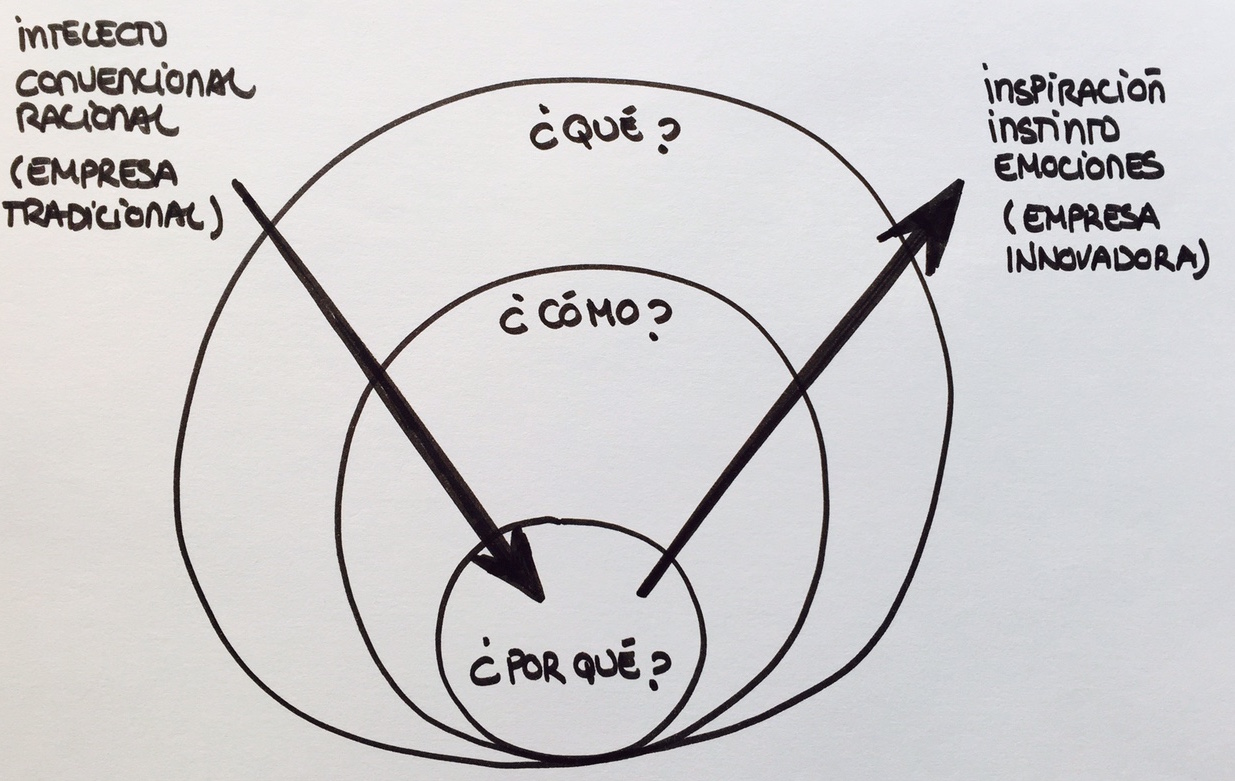 INTELECTO
CONVENCIONAL
RACIONAL
(EMPRESA
TRADICIONAL)
¿QUÉ?
¿CÓMO?
¿POR QUÉ?
INSPIRACIÓN
INSTINTO
EMOCIONES
(EMPRESA
INNOVADORA)